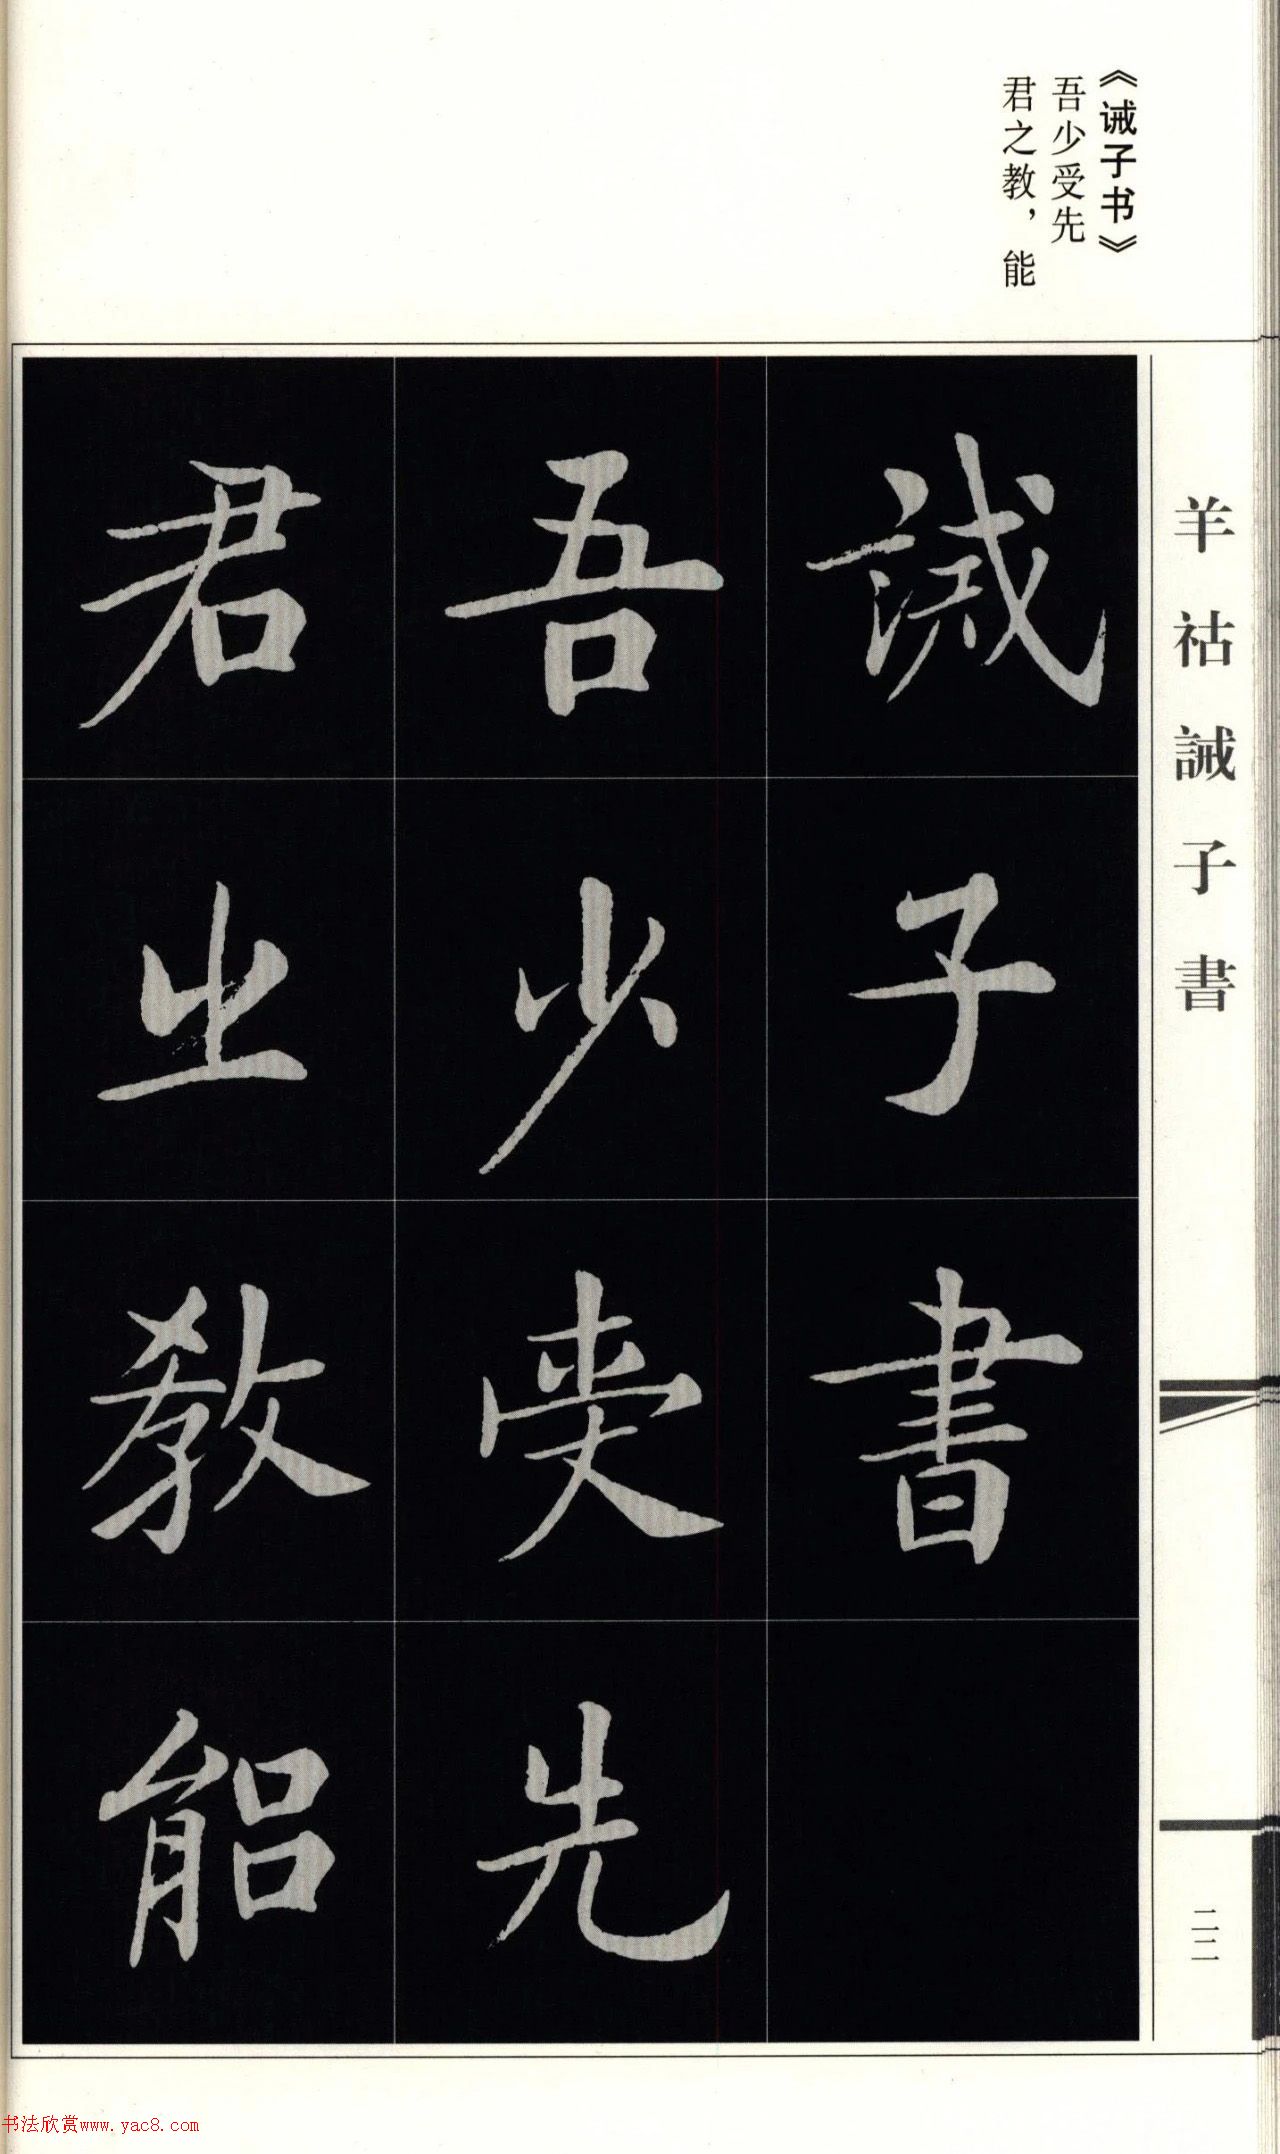 《诫子书》
吾少受先
君之教，能
誡子書
吾少受先
君之教能
羊祜誡子書
二二
书法欣赏www.yac8.com